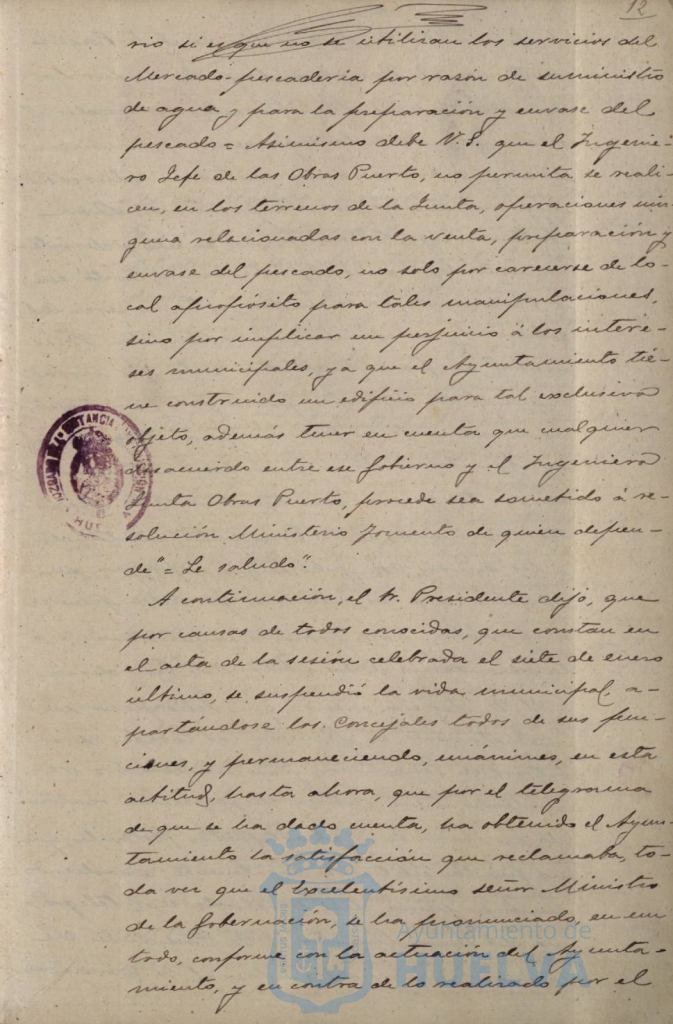 12
rio si es que no se utilizan los servicios del
Mercado-pescadería por razón de suministro
de agua y para la preparación y envase del
pescado = Asimismo debe V. S. que el Ingenie-
ro Jefe de las Obras Puerto, no permita se reali-
cen, en los terrenos de la Junta, operaciones nin-
guna relacionadas con la venta, preparación y
envase del pescado, no solo por carecerse de lo-
cal apropósito para tales manipulaciones,
sino por implicar un perjuicio á los intere-
ses municipales, ya que el Ayuntamiento tie-
ne construido un edificio para tal exclusivo
objeto, además tener en cuenta que cualquier
desacuerdo entre ese Gobierno y el Ingeniero
Junta Obras Puerto, procede sea sometido á re-
solución Ministerio Fomento de quien depen-
de" = Le saludo".
A continuación, el Sr. Presidente dijo, que
por causas de todos conocidas, que constan en
el acta de la sesión celebrada el siete de enero
último, se suspendió la vida municipal, a-
partándose los Concejales todos de sus fun-
ciones, y permaneciendo, unánimes, en esta
actitud, hasta ahora, que por el telegrama
de que se ha dado cuenta, ha obtenido el Ayun-
tamiento la satisfacción que reclamaba, to-
da vez que el Excelentísimo señor Ministro
de la Gobernación, se ha pronunciado, en un
todo, conforme con la actuación del Ayunta-
miento, y en contra de lo realizado por el
Ayuntamiento de
HUELVA